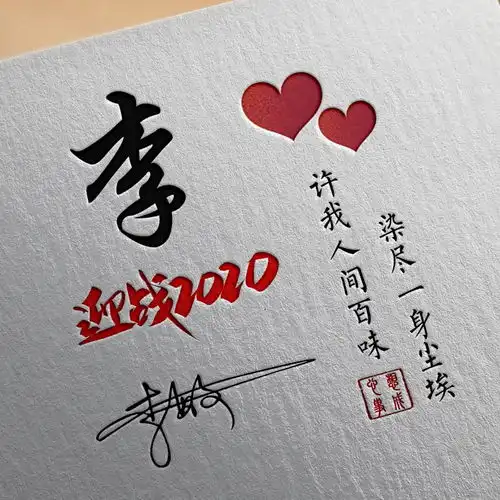 李
迎战2020
染尽一身尘埃
许我人间百味
心想事成